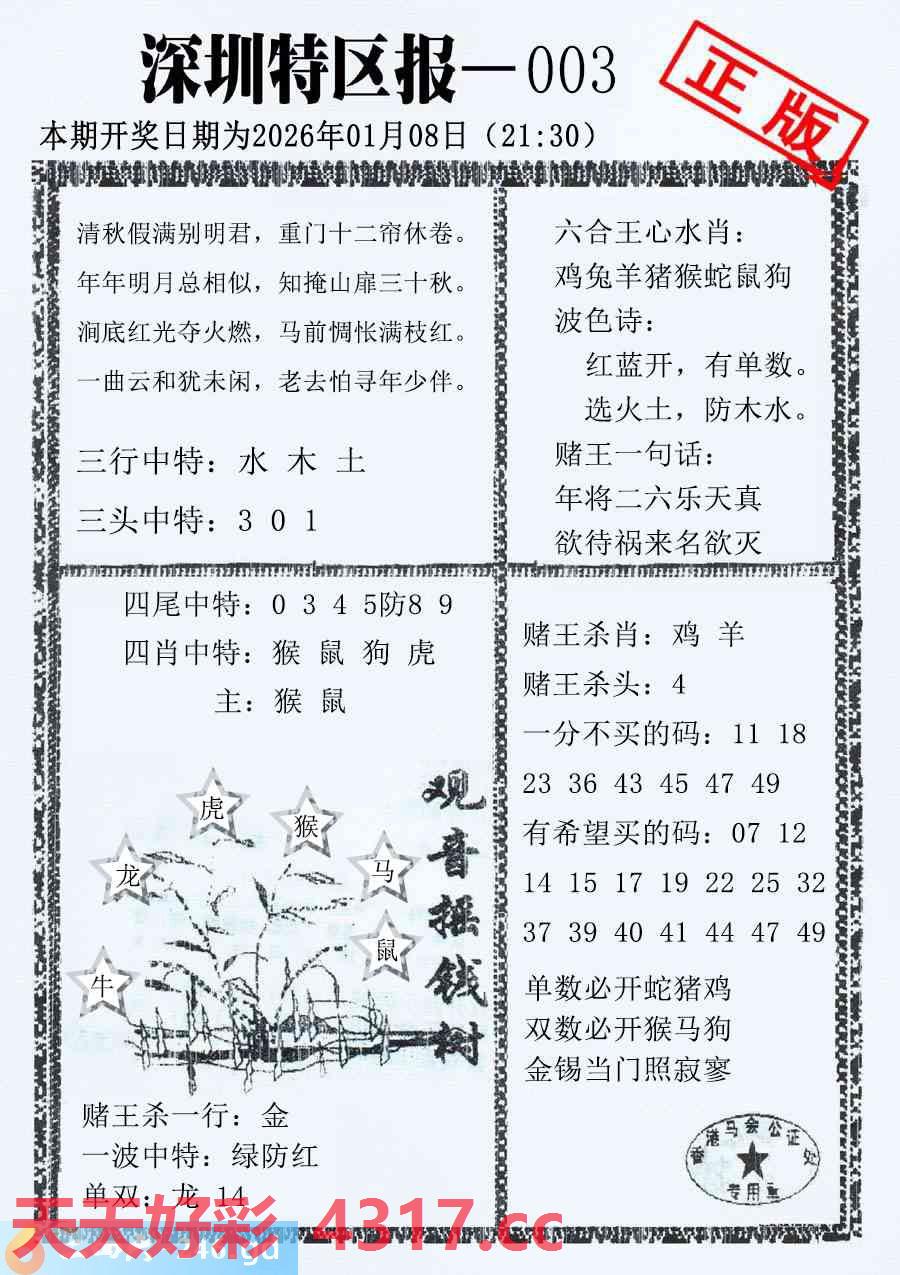 深圳特区报—003
正版
本期开奖日期为2026年01月08日（21:30）
清秋假满别明君，重门十二帘休卷。
年年明月总相似，知掩山扉三十秋。
涧底红光夺火燃，马前惆怅满枝红。
一曲云和犹未闲，老去怕寻年少伴。
三行中特：水 木 土
三头中特：3 0 1
六合王心水肖：
鸡兔羊猪猴蛇鼠狗
波色诗：
红蓝开，有单数。
选火土，防木水。
赌王一句话：
年将二六乐天真
欲待祸来名欲灭
四尾中特：0 3 4 5防8 9
四肖中特：猴 鼠 狗 虎
主：猴 鼠
虎
猴
龙
马
鼠
牛
观音摇钱树
赌王杀一行：金
一波中特：绿防红
单双：龙 14
赌王杀肖：鸡 羊
赌王杀头：4
一分不买的码：11 18
23 36 43 45 47 49
有希望买的码：07 12
14 15 17 19 22 25 32
37 39 40 41 44 47 49
单数必开蛇猪鸡
双数必开猴马狗
金锡当门照寂寥
香港马会公证处
专用章
天天好彩 4317.cc